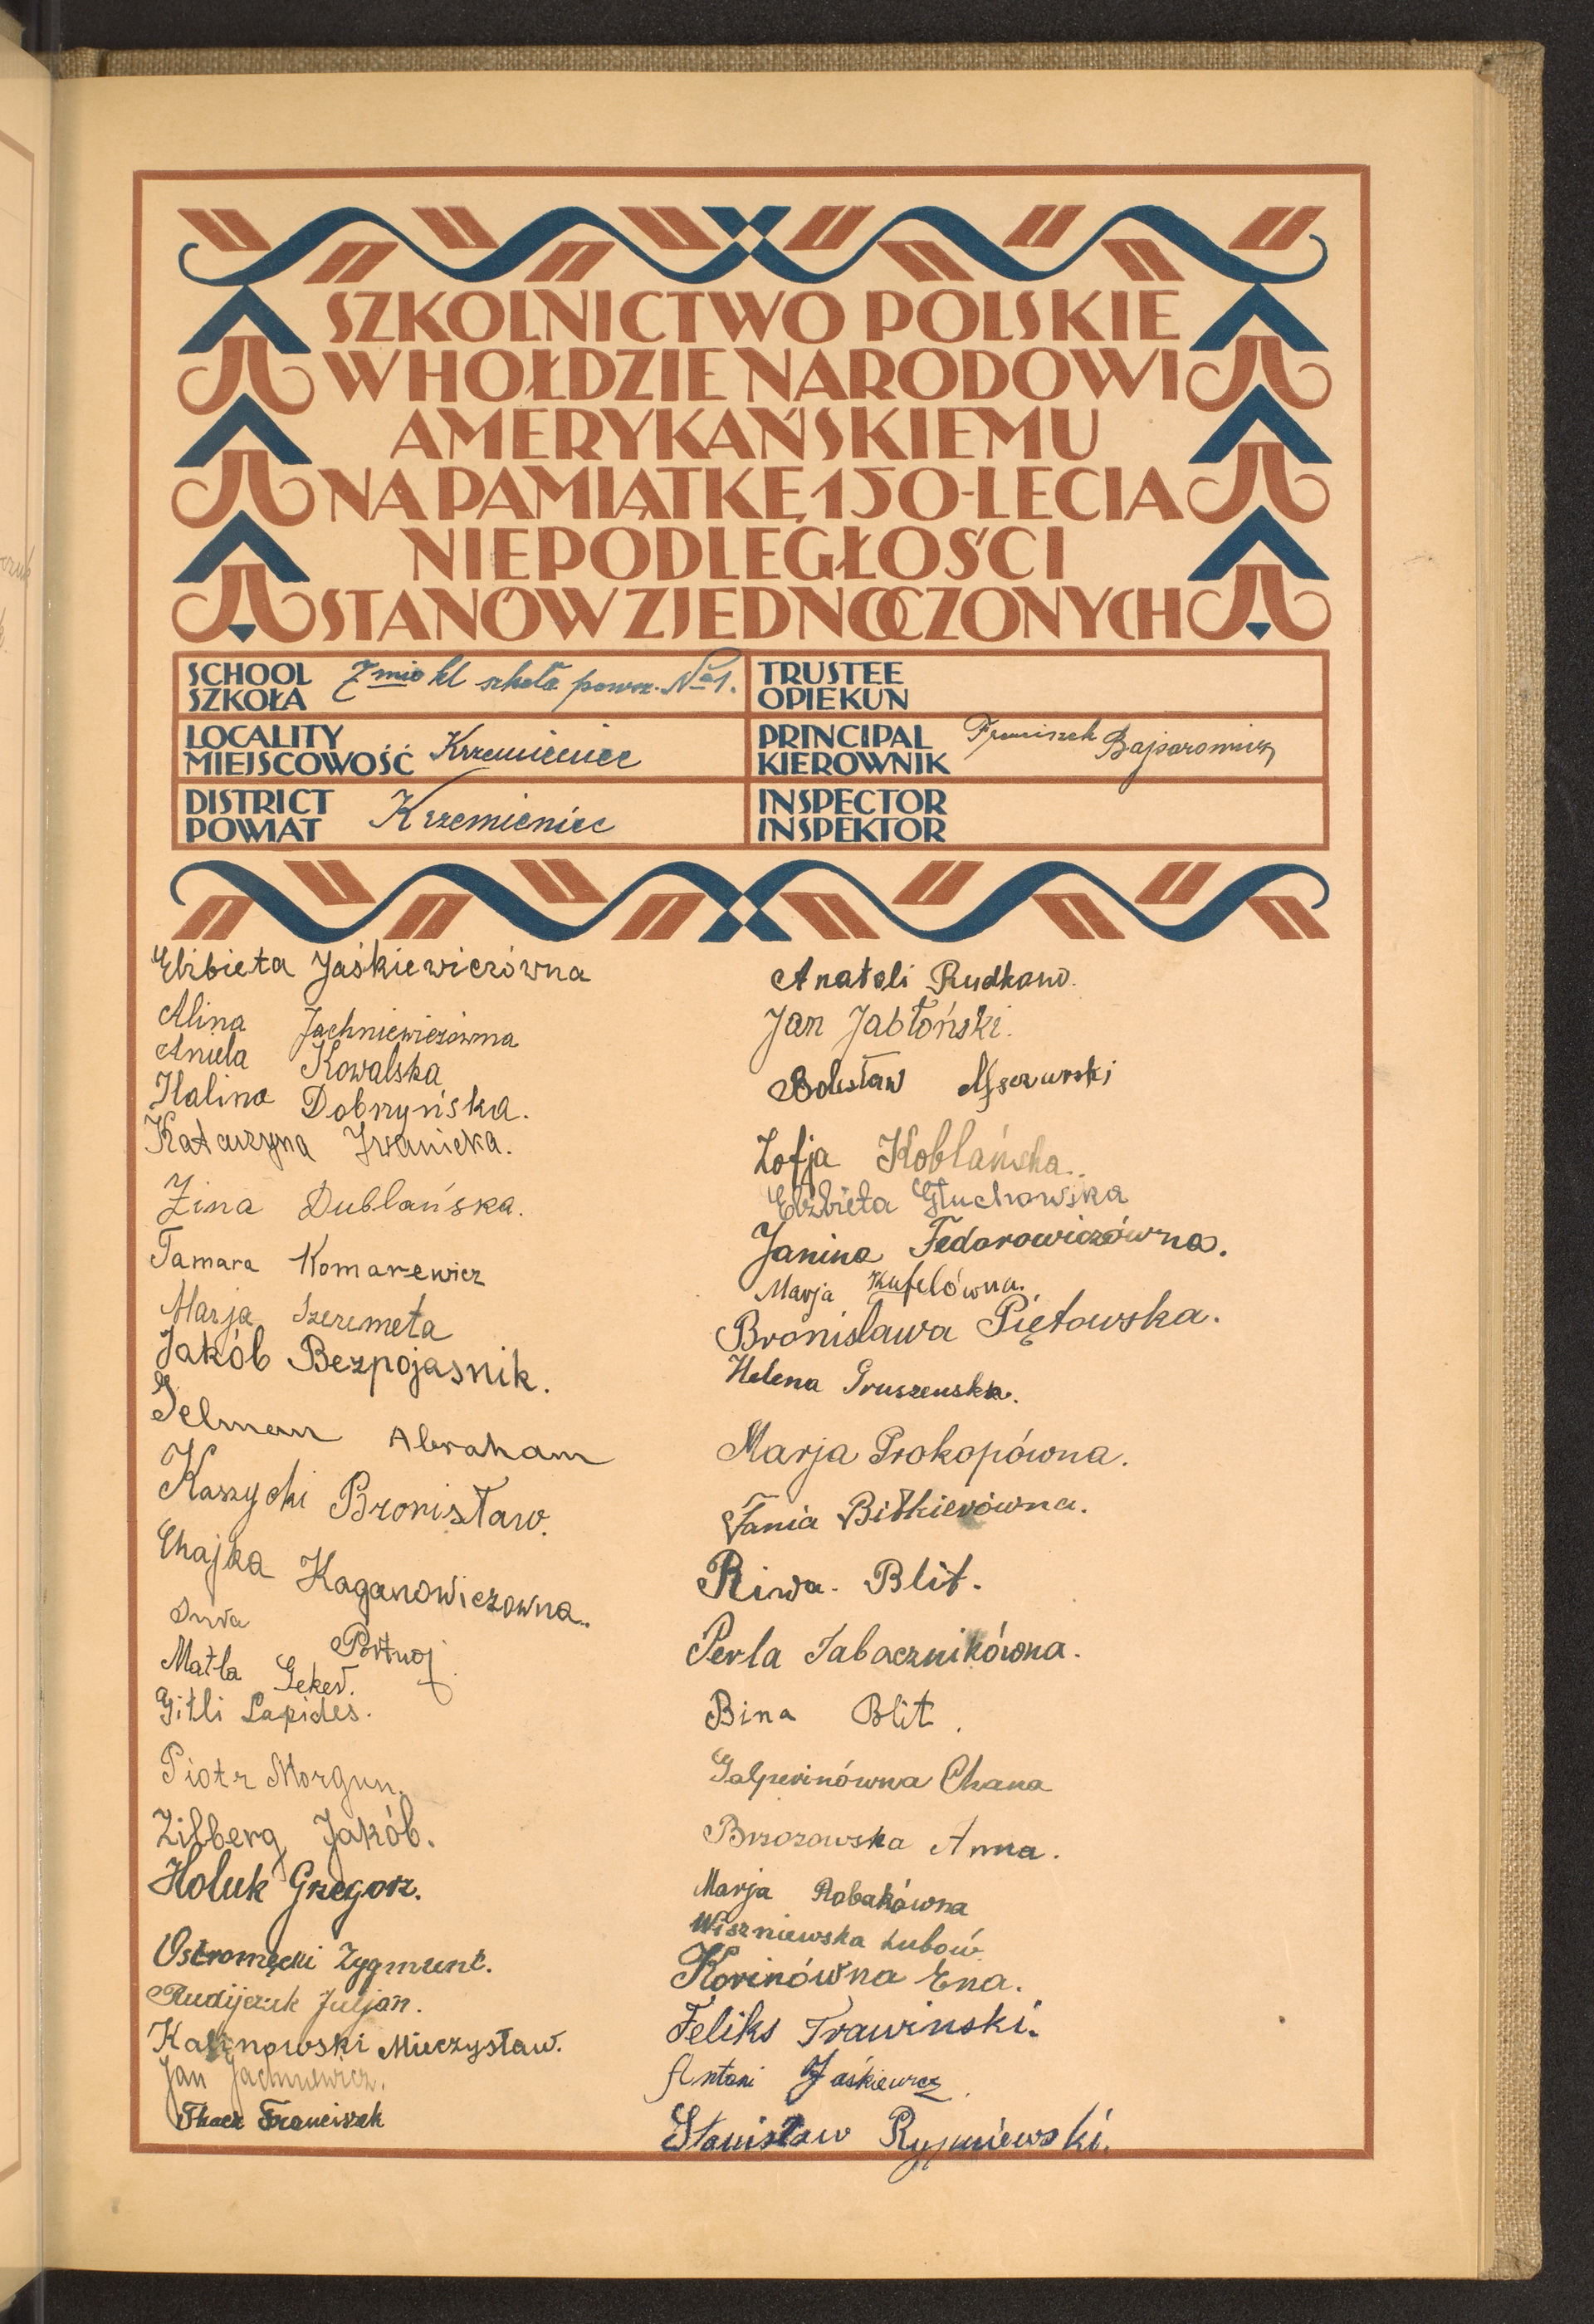 SZKOLNICTWO POLSKIE
W HOŁDZIE NARODOWI
AMERYKAŃSKIEMU
NA PAMIĄTKĘ 150-LECIA
NIEPODLEGŁOŚCI
STANÓW ZJEDNOCZONYCH
SCHOOL
SZKOŁA
7mio kl szkoła powsz. No 1.
TRUSTEE
OPIEKUN
LOCALITY
MIEJSCOWOŚĆ
Krzemieniec
PRINCIPAL
KIEROWNIK
Franciszek
DISTRICT
POWIAT
Krzemieniec
INSPECTOR
INSPEKTOR
Elżbieta Jaśkiewiczówna
Alina Jachniewiczówna
Aniela Kowalska
Halina Dobrzyńska.
Katarzyna Iwanicka.
Zina Dublańska.
Tamara Komarewicz
Marja Szeremeta
Jakób Bezpojasnik.
Gelman Abraham
Kaszycki Bronisław.
Chajka Kaganowiczowna.
Portnoj
Matla Geker.
Gitli Lapides.
Piotr Morgun.
Zilberg Jakób.
Holuk Grzegorz.
Ostromęcki Zygmunt.
Juljan.
Kalinowski Mieczysław.
Jan Jachniewicz.
Tkacz Franciszek
Anatoli Rudkow.
Jan Jabłoński.
Bolesław
Zofja Koblańska.
Elżbieta Głuchowska
Janina Fedorowiczówna.
Marja Kufelówna.
Bronisława Piętowska.
Helena Gruszenska.
Marja Prokopówna.
Fania Bitkierówna.
Riwa. Blit.
Perla Tabacznikówna.
Bina Blit.
Galperinówna Chana
Brzozowska Anna.
Marja Robakówna
Wiszniewska Lubow
Korinówna Ena.
Feliks Trawinski.
Antoni Jaśkiewicz.
Stanisław